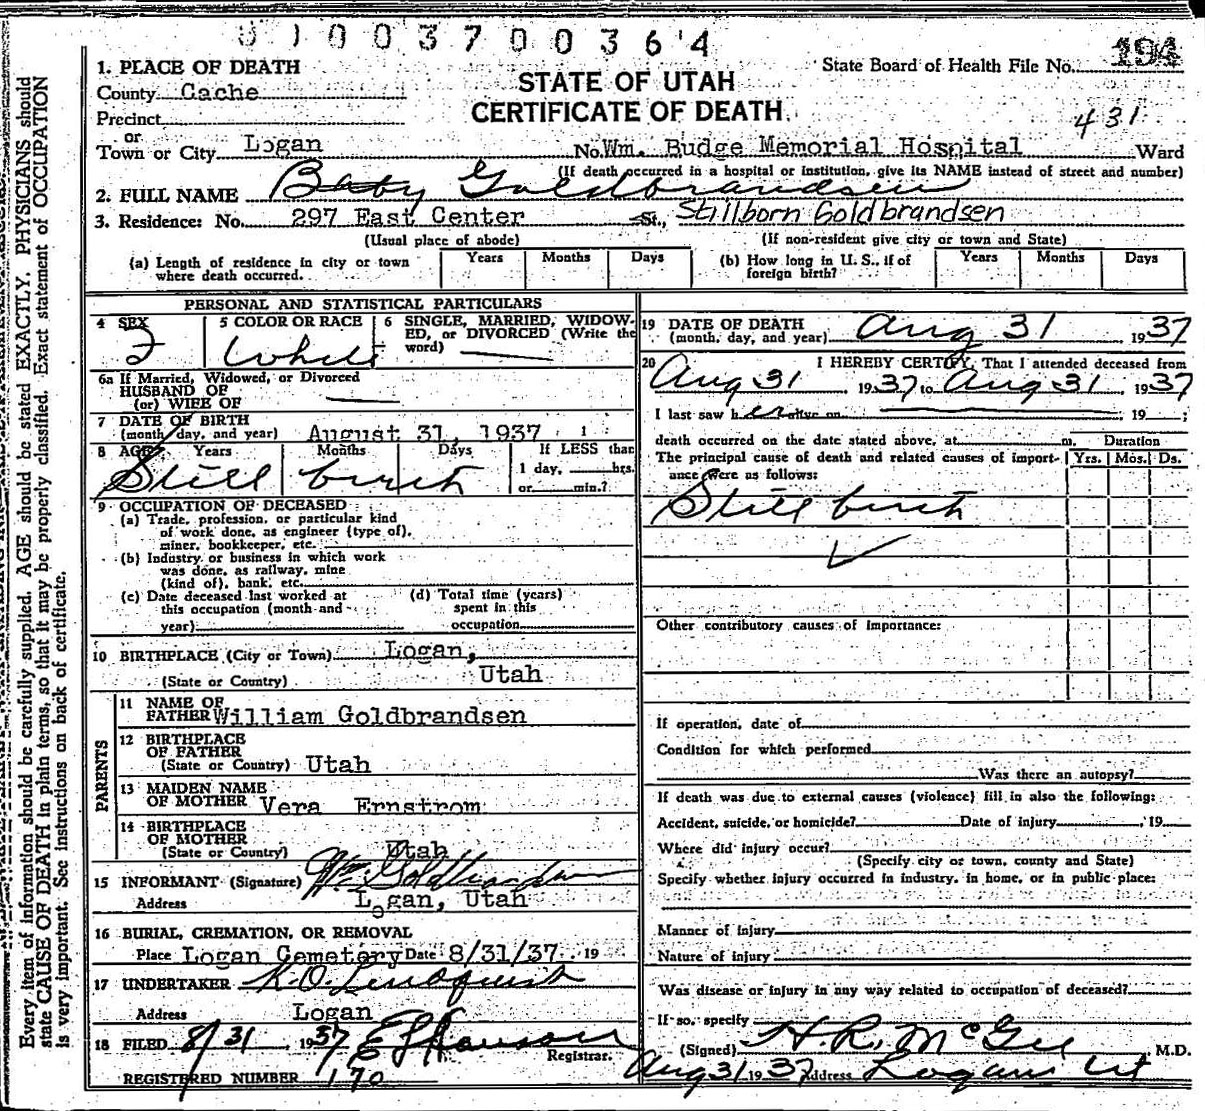 0 1 0 0 3 7 0 0 3 6 4
194
1. PLACE OF DEATH
STATE OF UTAH
CERTIFICATE OF DEATH
State Board of Health File No.
County Cache
Precinct
431
or
Town or City Logan No. Wm. Budge Memorial Hospital Ward
(If death occurred in a hospital or institution, give its NAME instead of street and number)
2. FULL NAME Baby Goldbrandsen
3. Residence: No. 297 East Center St., Stillborn Goldbrandsen
(Usual place of abode) (If non-resident give city or town and State)
(a) Length of residence in city or town where death occurred. Years Months Days
(b) How long in U. S., if of foreign birth? Years Months Days
PERSONAL AND STATISTICAL PARTICULARS
4 SEX
5 COLOR OR RACE White
6 SINGLE, MARRIED, WIDOWED, or DIVORCED (Write the word)
6a If Married, Widowed, or Divorced
HUSBAND OF
(or) WIFE OF
7 DATE OF BIRTH
(month, day, and year) August 31, 1937
8 AGE Years Months Days If LESS than
1 day, hrs.
or min.?
Still birth
9 OCCUPATION OF DECEASED
(a) Trade, profession, or particular kind
of work done, as engineer (type of),
miner, bookkeeper, etc.
(b) Industry or business in which work
was done, as railway, mine
(kind of), bank, etc.
(c) Date deceased last worked at
this occupation (month and
year)
(d) Total time (years)
spent in this
occupation
10 BIRTHPLACE (City or Town) Logan,
(State or Country) Utah
PARENTS
11 NAME OF
FATHER William Goldbrandsen
12 BIRTHPLACE
OF FATHER
(State or Country) Utah
13 MAIDEN NAME
OF MOTHER Vera Ernstrom
14 BIRTHPLACE
OF MOTHER
(State or Country) Utah
15 INFORMANT (Signature) Wm. Goldbrandsen
Address Logan, Utah
16 BURIAL, CREMATION, OR REMOVAL
Place Logan Cemetery Date 8/31/37 19
17 UNDERTAKER K.O. Lindquist
Address Logan
18 FILED 8/31 1937
Registrar.
REGISTERED NUMBER 170
19 DATE OF DEATH
(month, day, and year) Aug 31 1937
20 I HEREBY CERTIFY, That I attended deceased from
Aug 31 1937 to Aug 31 1937
I last saw her alive on 19 ;
death occurred on the date stated above, at m. Duration
The principal cause of death and related causes of importance were as follows: Yrs. Mos. Ds.
Still birth
Other contributory causes of importance:
If operation, date of
Condition for which performed
Was there an autopsy?
If death was due to external causes (violence) fill in also the following:
Accident, suicide, or homicide? Date of injury , 19
Where did injury occur?
(Specify city or town, county and State)
Specify whether injury occurred in industry, in home, or in public place:
Manner of injury
Nature of injury
Was disease or injury in any way related to occupation of deceased?
If so, specify
(Signed) H.R. McGee M.D.
Aug 31 1937 Address Logan Ut
Every item of information should be carefully supplied. AGE should be stated EXACTLY. PHYSICIANS should
state CAUSE OF DEATH in plain terms, so that it may be properly classified. Exact statement of OCCUPATION
is very important. See instructions on back of certificate.